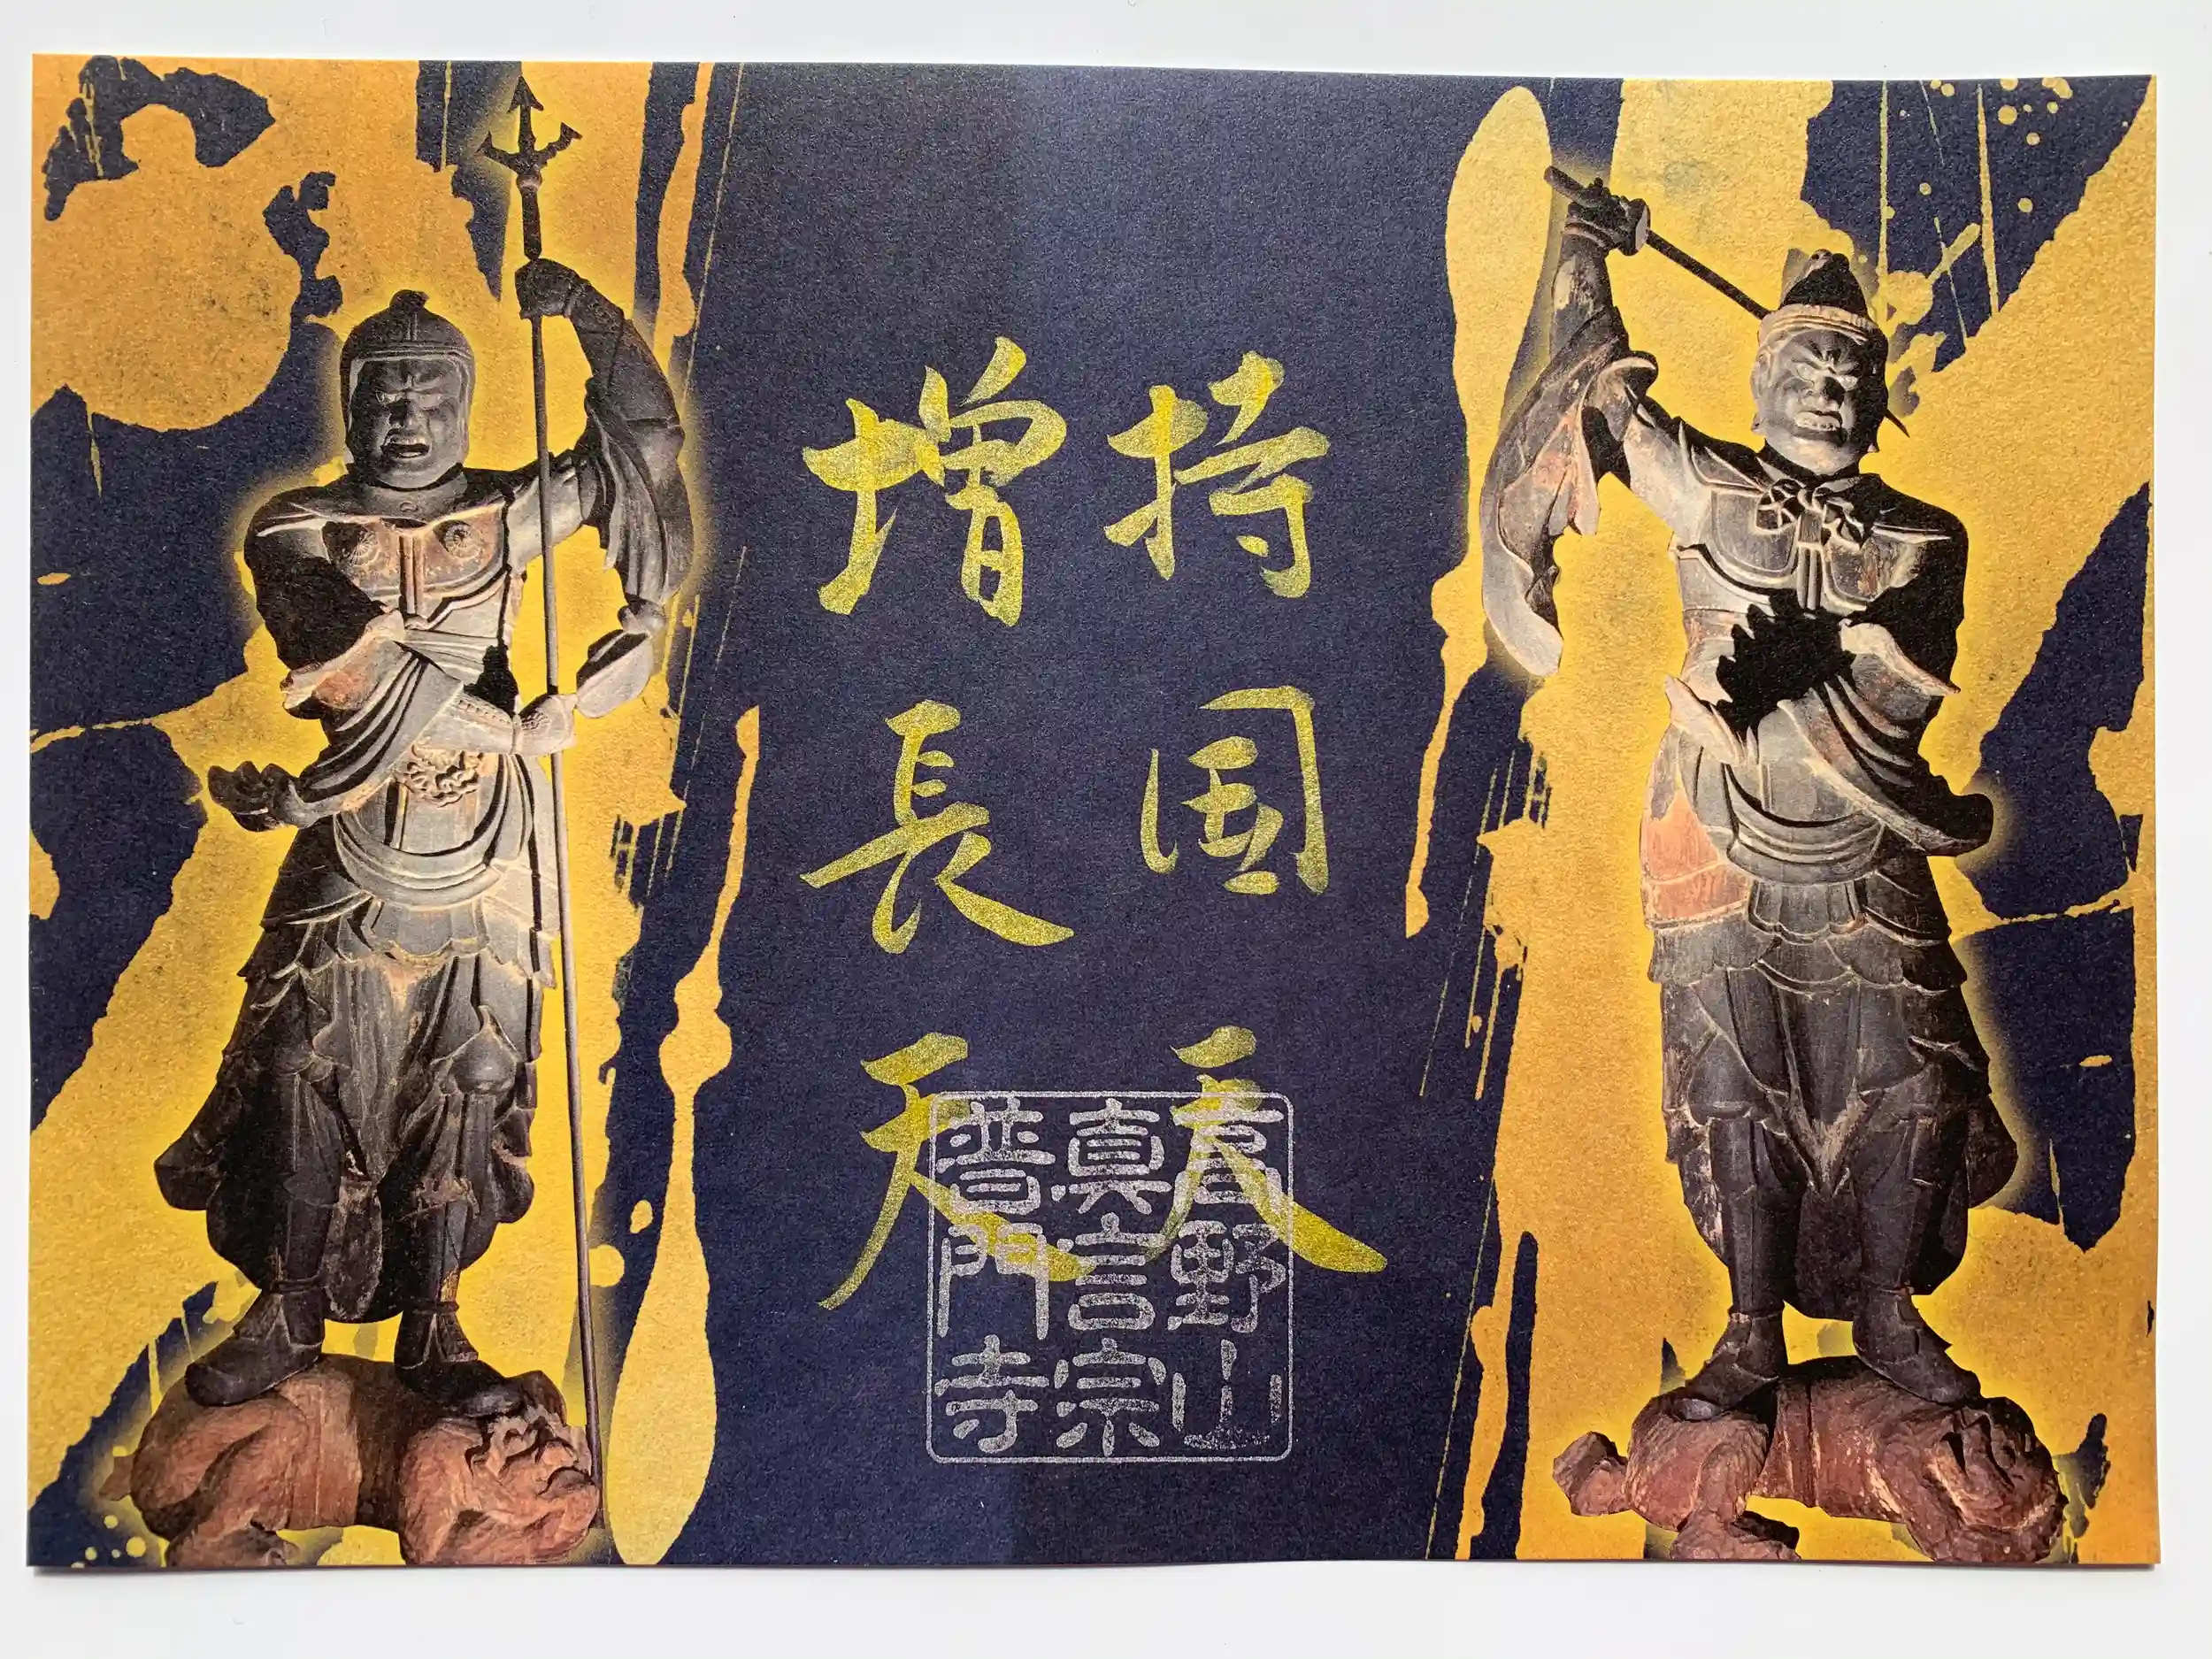 持国天
増長天
高野山
真言宗
普門寺